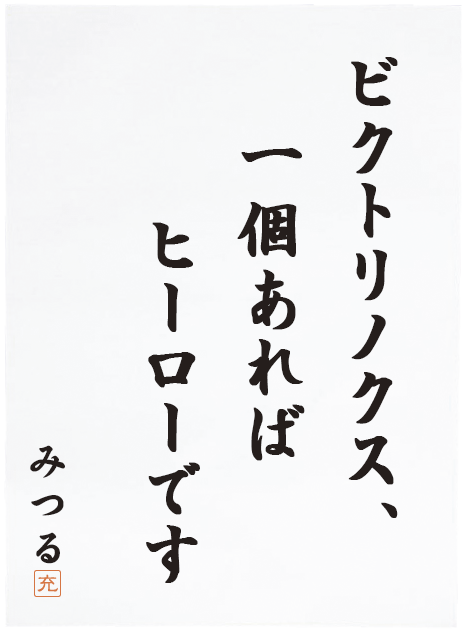 ビクトリノクス、
一個あれば
ヒーローです
みつる
充